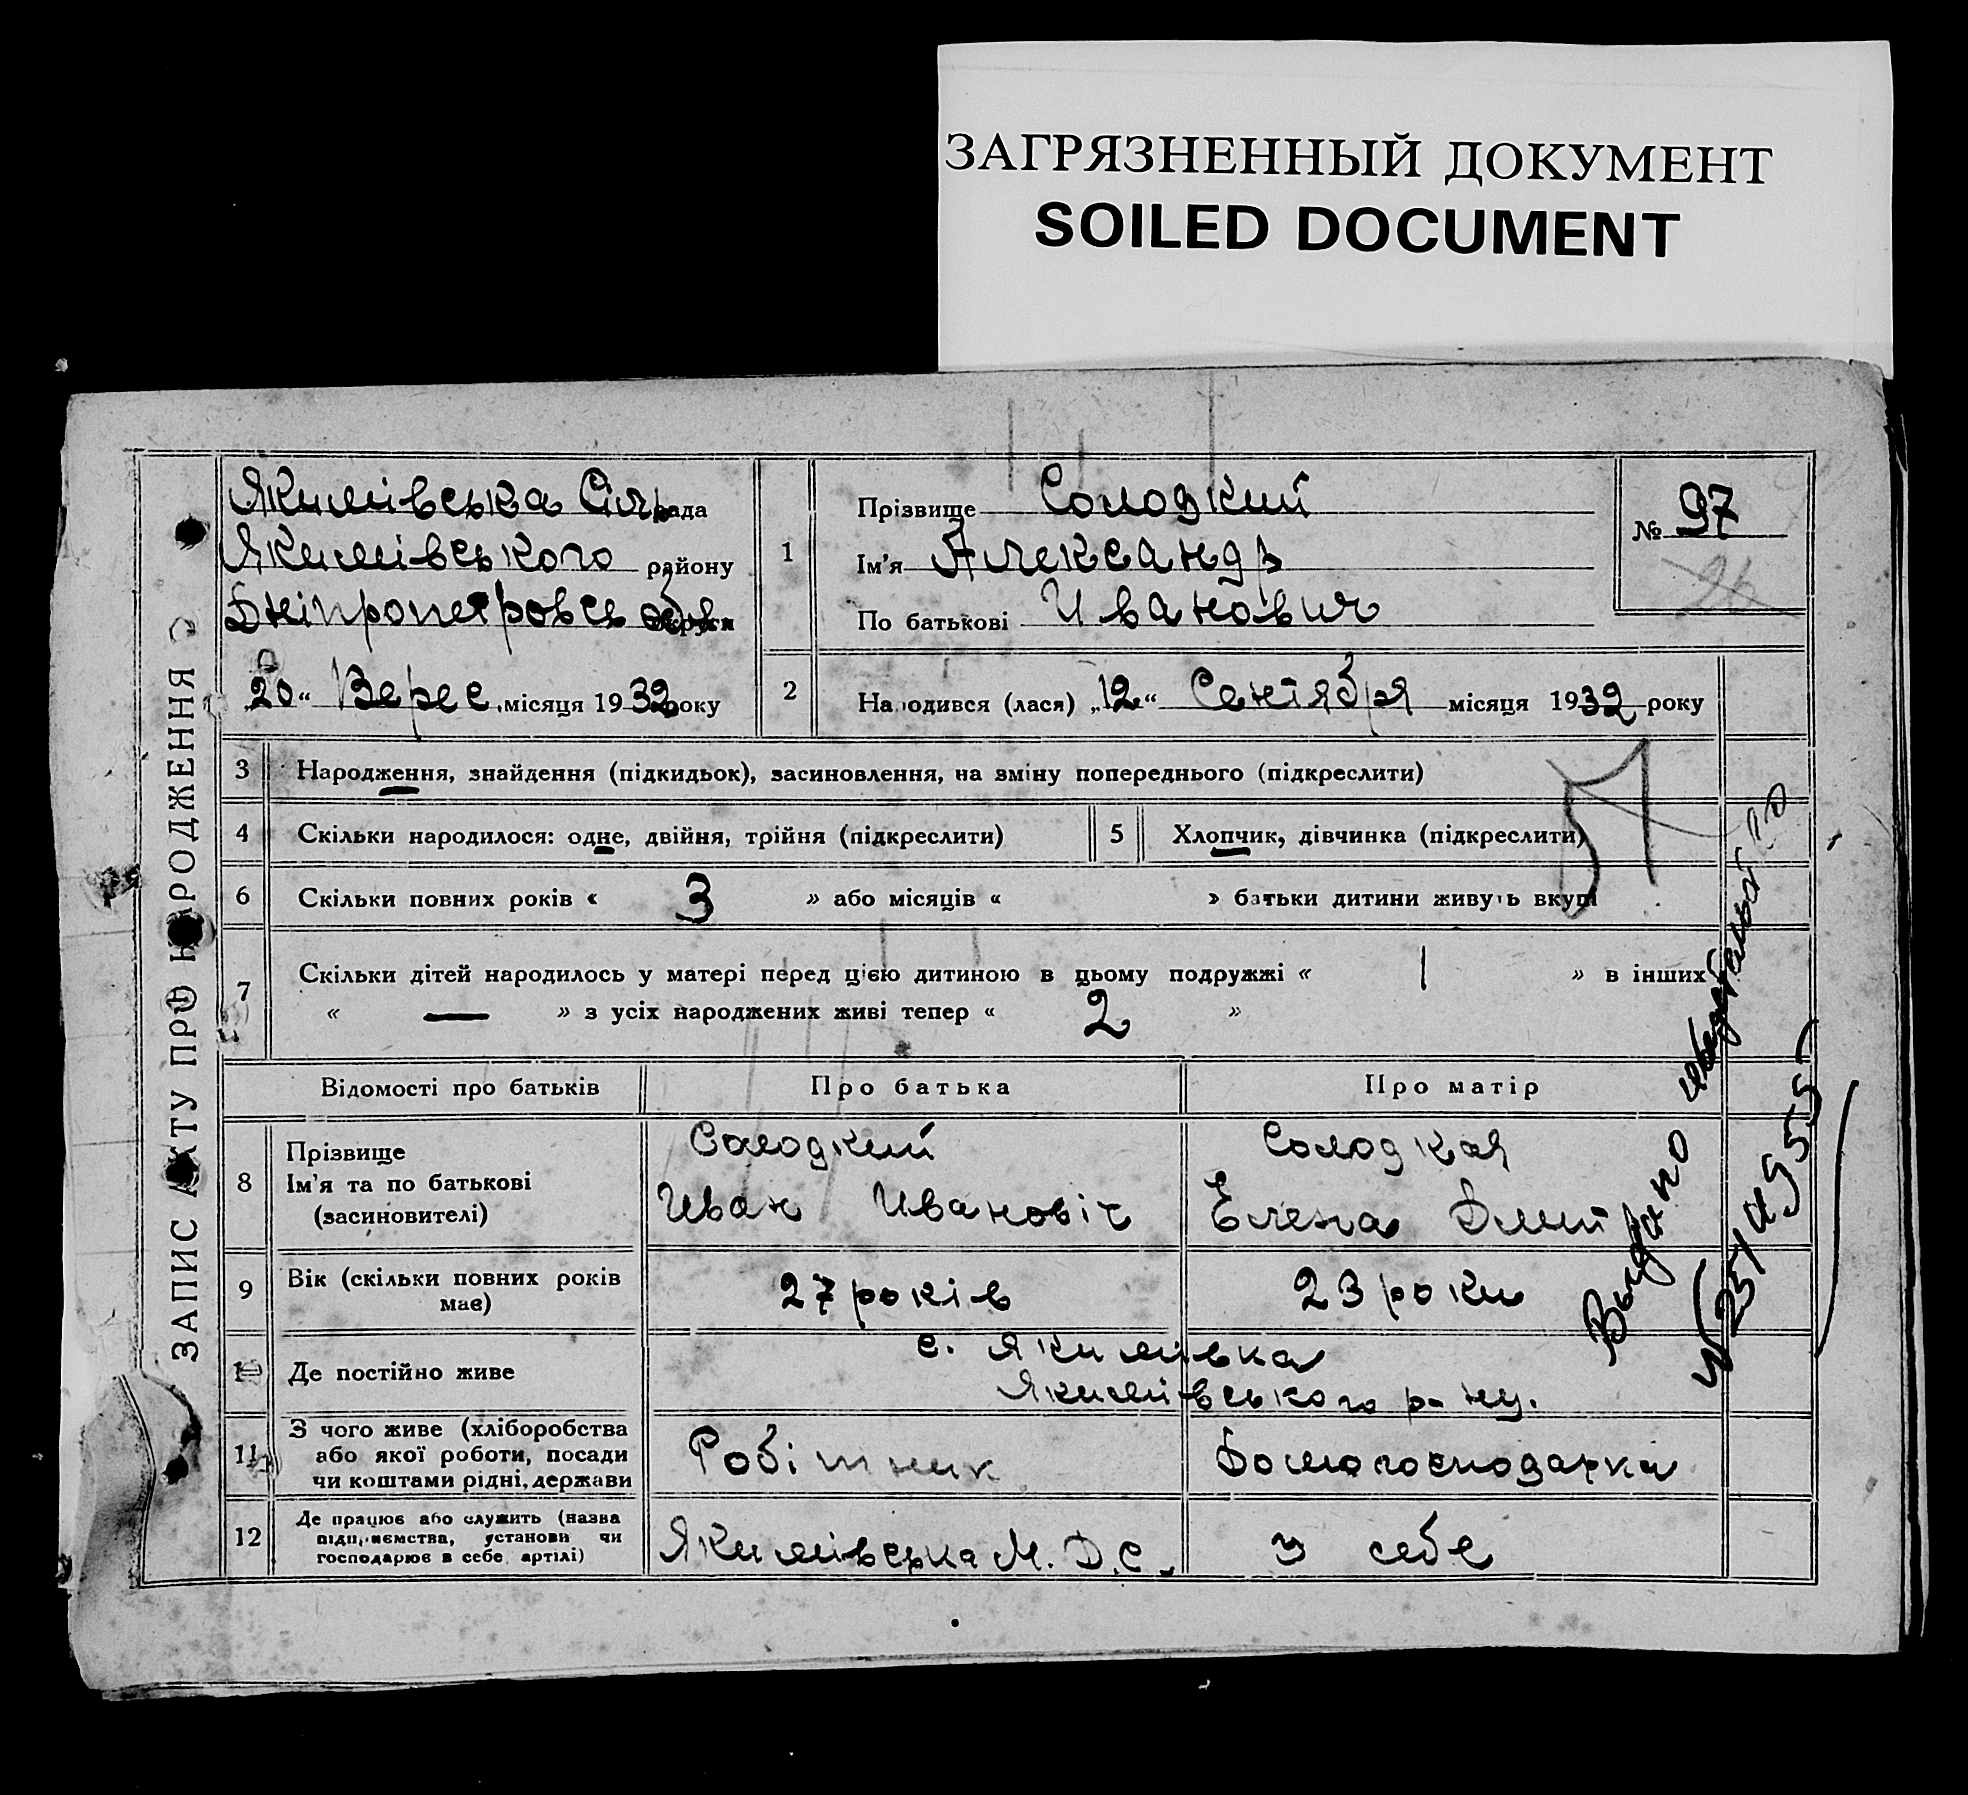 ЗАГРЯЗНЕННЫЙ ДОКУМЕНТ
SOILED DOCUMENT
ЗАПИС АКТУ ПРО НАРОДЖЕННЯ
Якимівська Сільрада
Якимівського району
Дніпропетровсь обл округи
„20“ Верес. місяця 1932 року
1
Прізвище Солодкий
Ім'я Александр
По батькові Иванович
№ 97
26
2
Народився (лася) „12“ Сентября місяця 1932 року
3 Народження, знайдення (підкидьок), засиновлення, на зміну попереднього (підкреслити)
4 Скільки народилося: одне, двійня, трійня (підкреслити)
5 Хлопчик, дівчинка (підкреслити)
6 Скільки повних років « 3 » або місяців « » батьки дитини живуть вкупі
7 Скільки дітей народилось у матері перед цією дитиною в цьому подружжі « 1 » в інших
« — » з усіх народжених живі тепер « 2 »
Відомості про батьків Про батька Про матір
8 Прізвище
Ім'я та по батькові
(засиновителі)
Солодкий
Иван Івановіч
Солодкая
Елена Дмитр
9 Вік (скільки повних років
має)
27 років
23 роки
10 Де постійно живе
с. Якимівка
Якимівського р-ну.
11 З чого живе (хліборобства
або якої роботи, посади
чи коштами рідні, держави
Робітник
Домогосподарка
12 Де працює або служить (назва
підприємства, установи чи
господарює в себе артілі)
Якимівська М. Д. С.
У себе
Выдано